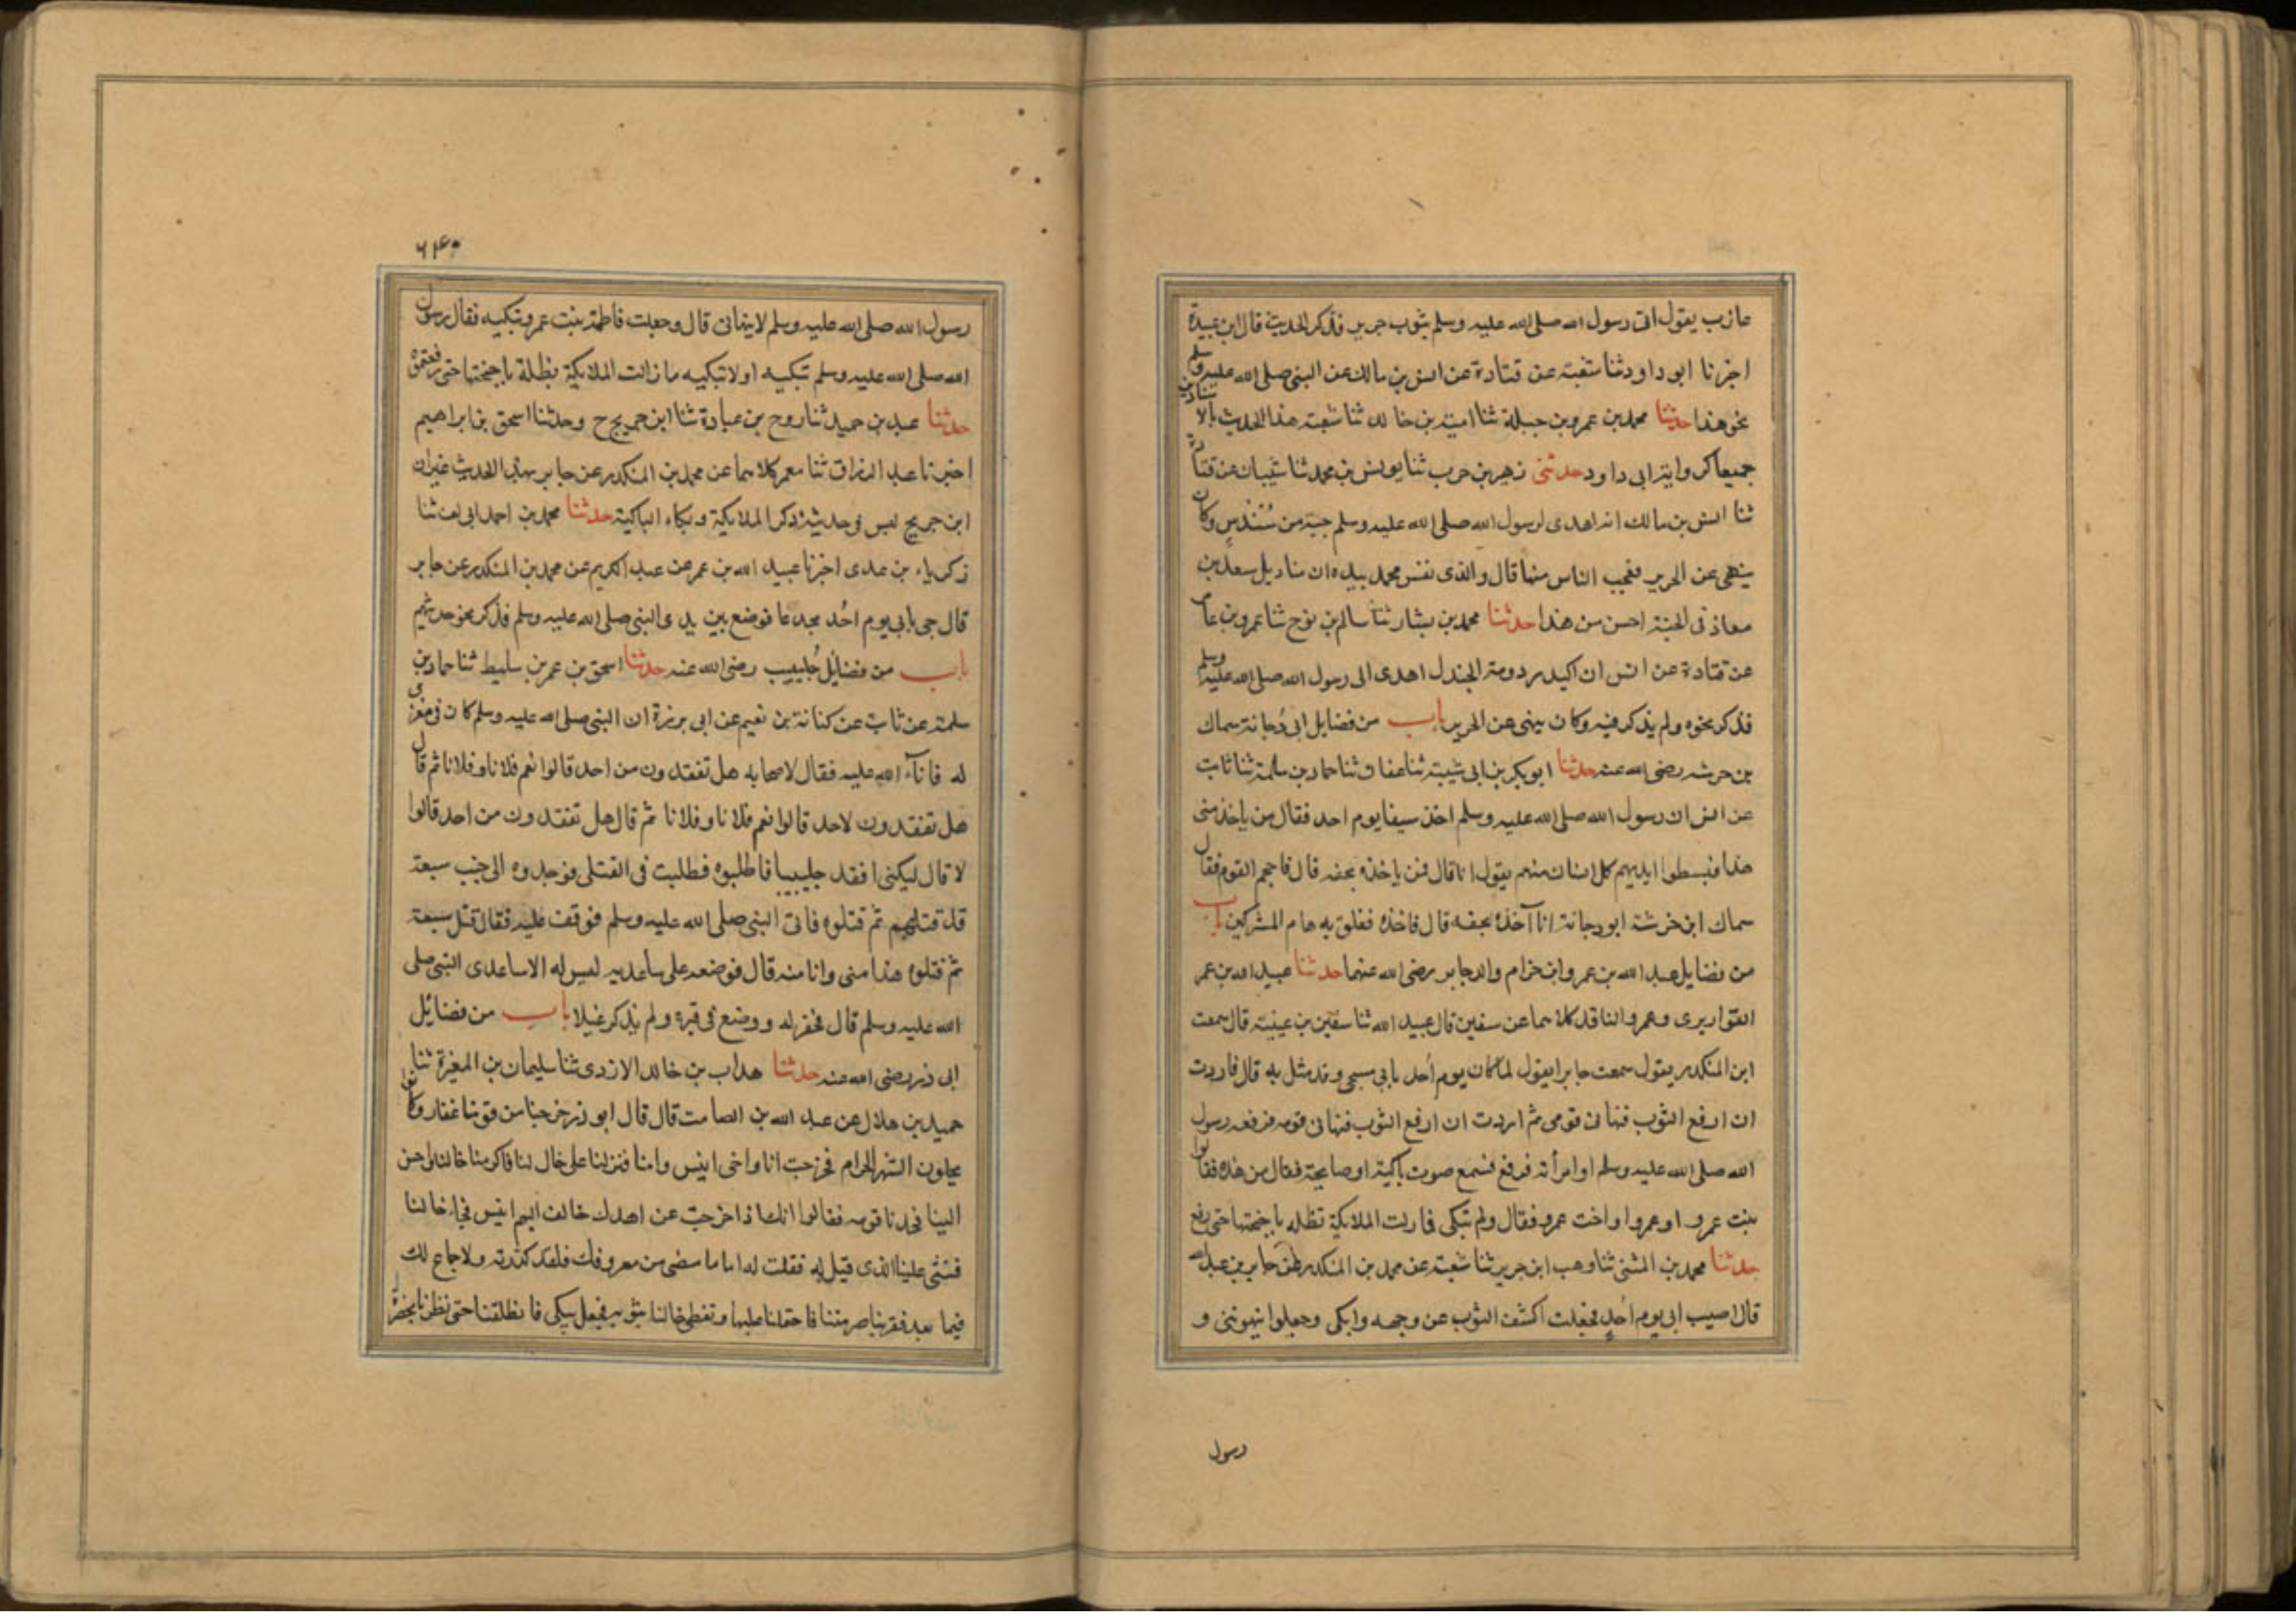 عازب يقول اتى رسول الله صلى الله عليه وسلم بثوب حرير فذكر الحديث قال ابن عبدة
اخبرنا ابو داود ثنا شعبة عن قتادة عن انس بن مالك عن النبى صلى الله عليه وسلم
نحو هذا حدثنا محمد بن عمرو بن جبلة ثنا امية بن خالد ثنا شعبة هذا الحديث بالاسنادين
جميعا كرواية ابى داود حدثنى زهير بن حرب ثنا يونس بن محمد ثنا شيبان عن قتادة
ثنا انس بن مالك انه اهدى لرسول الله صلى الله عليه وسلم جبة من سُندسٍ وكان
ينهى عن الحرير فعجب الناس منها قال والذى نفس محمد بيده ان مناديل سعد بن
معاذ فى الجنة احسن من هذا حدثنا محمد بن بشار ثنا سالم بن نوح ثنا عمرو بن عامر
عن قتادة عن انس ان اكيدر دومة الجندل اهدى الى رسول الله صلى الله عليه وسلم
فذكر نحوه ولم يذكر فيه وكان ينهى عن الحرير باب من فضايل ابى دُجانة سماك
بن خرشه رضى الله عنه حدثنا ابو بكر بن ابى شيبة ثنا عفان ثنا حماد بن سلمة ثنا ثابت
عن انس ان رسول الله صلى الله عليه وسلم اخذ سيفا يوم احد فقال من ياخذ منى
هذا فبسطوا ايديهم كل انسان منهم يقول انا قال فمن ياخذه بحقه قال فاحجم القوم فقال
سماك ابن خرشة ابو دجانة انا آخذه بحقه قال فاخذه ففلق به هام المشركين باب
من فضايل عبد الله بن عمرو ابن حزام والد جابر رضى الله عنهما حدثنا عبيد الله بن عمر
القواريرى وعمرو الناقد كلاهما عن سفين قال عبيد الله ثنا سفين بن عيينة قال سمعت
ابن المنكدر يقول سمعت جابرا يقول لما كان يوم اُحد بابى مسجى وقد مثل به قال فاردت
ان ارفع الثوب فنهانى قومى ثم اردت ان ارفع الثوب فنهانى قومه فرفعه رسول
الله صلى الله عليه وسلم او امر به فرفع فسمع صوت باكية او صايحة فقال من هذه فقالوا
بنت عمرو او عمروا واخت عمرو فقال ولم تبكى فمازلت الملايكة تظله باجنحتها حتى رفع
حدثنا محمد بن المثنى ثنا وهب ابن جرير ثنا شعبة عن محمد بن المنكدر عن جابر بن عبد الله
قال اصيب ابى يوم اُحدٍ فجعلت اكشف الثوب عن وجهه وابكى وجعلوا ينهوننى و
رسول
٦١٤٠
رسول الله صلى الله عليه وسلم لا ينهانى قال وجعلت فاطمة بنت عمرو تبكيه فقال رسول
الله صلى الله عليه وسلم تبكيه او لا تبكيه ما زالت الملايكة تظله باجنحتها حتى رفعتموه
حدثنا عبد بن حميد ثنا روح بن عبادة ثنا ابن جريج ح وحدثنا اسحق بن ابراهيم
اخبرنا عبد الرزاق ثنا معمر كلاهما عن محمد بن المنكدر عن جابر بهذا الحديث غير ان
ابن جريج ليس فى حديثه ذكر الملايكة وبكاء الباكية حدثنا محمد بن احمد ابى خلف ثنا
زكرياء بن عدى اخبرنا عبيد الله بن عمر عن عبد الكريم عن محمد بن المنكدر عن جابر
قال جى بابى يوم اُحد مجدعا فوضع بين يدى النبى صلى الله عليه وسلم فذكر نحو حديثهم
باب من فضايل جُليبيب رضى الله عنه حدثنا اسحق بن عمر بن سليط ثنا حماد بن
سلمة عن ثابت عن كنانة بن نعيم عن ابى برزة ان النبى صلى الله عليه وسلم كان فى مغزى
له فافآء الله عليه فقال لاصحابه هل تفقدون من احد قالوا نعم فلانا وفلانا ثم قال
هل تفقدون لاحد قالوا نعم فلانا وفلانا ثم قال هل تفقدون من احد قالوا
لا قال ليكنى افقد جليبيبا فاطلبوه فطلبت فى القتلى فوجدوه الى جنب سبعة
قد قتلهم ثم قتلوه فاتى النبى صلى الله عليه وسلم فوقف عليه فقال قتل سبعة
ثم قتلوه هذا منى وانا منه قال فوضعه على ساعديه ليس له الا ساعدى النبى صلى
الله عليه وسلم قال فحفر له ووضع فى قبره ولم يذكر غسلا باب من فضائل
ابى ذر رضى الله عنه حدثنا هداب بن خالد الازدى ثنا سليمان بن المغيرة ثنا
حميد بن هلال عن عبد الله بن الصامت قال قال ابو ذر خرجنا من قومنا غفار وكانوا
يحلون الشهر الحرام فخرجت انا واخى انيس وامنا فنزلنا على خال لنا فاكرمنا خالنا واحسن
الينا فحسدنا قومه فقالوا انك اذا خرجت عن اهلك خالف اليهم انيس فجاء خالنا
فنثى علينا الذى قيل له فقلت له اما ما مضى من معروفك فلقد كدرته ولا جماع لك
فيما بعد فقربنا صرمتنا فاحتملنا عليها وتغطى خالنا بثوبه فجعل يبكى فانطلقنا حتى نظرنا بحضرة